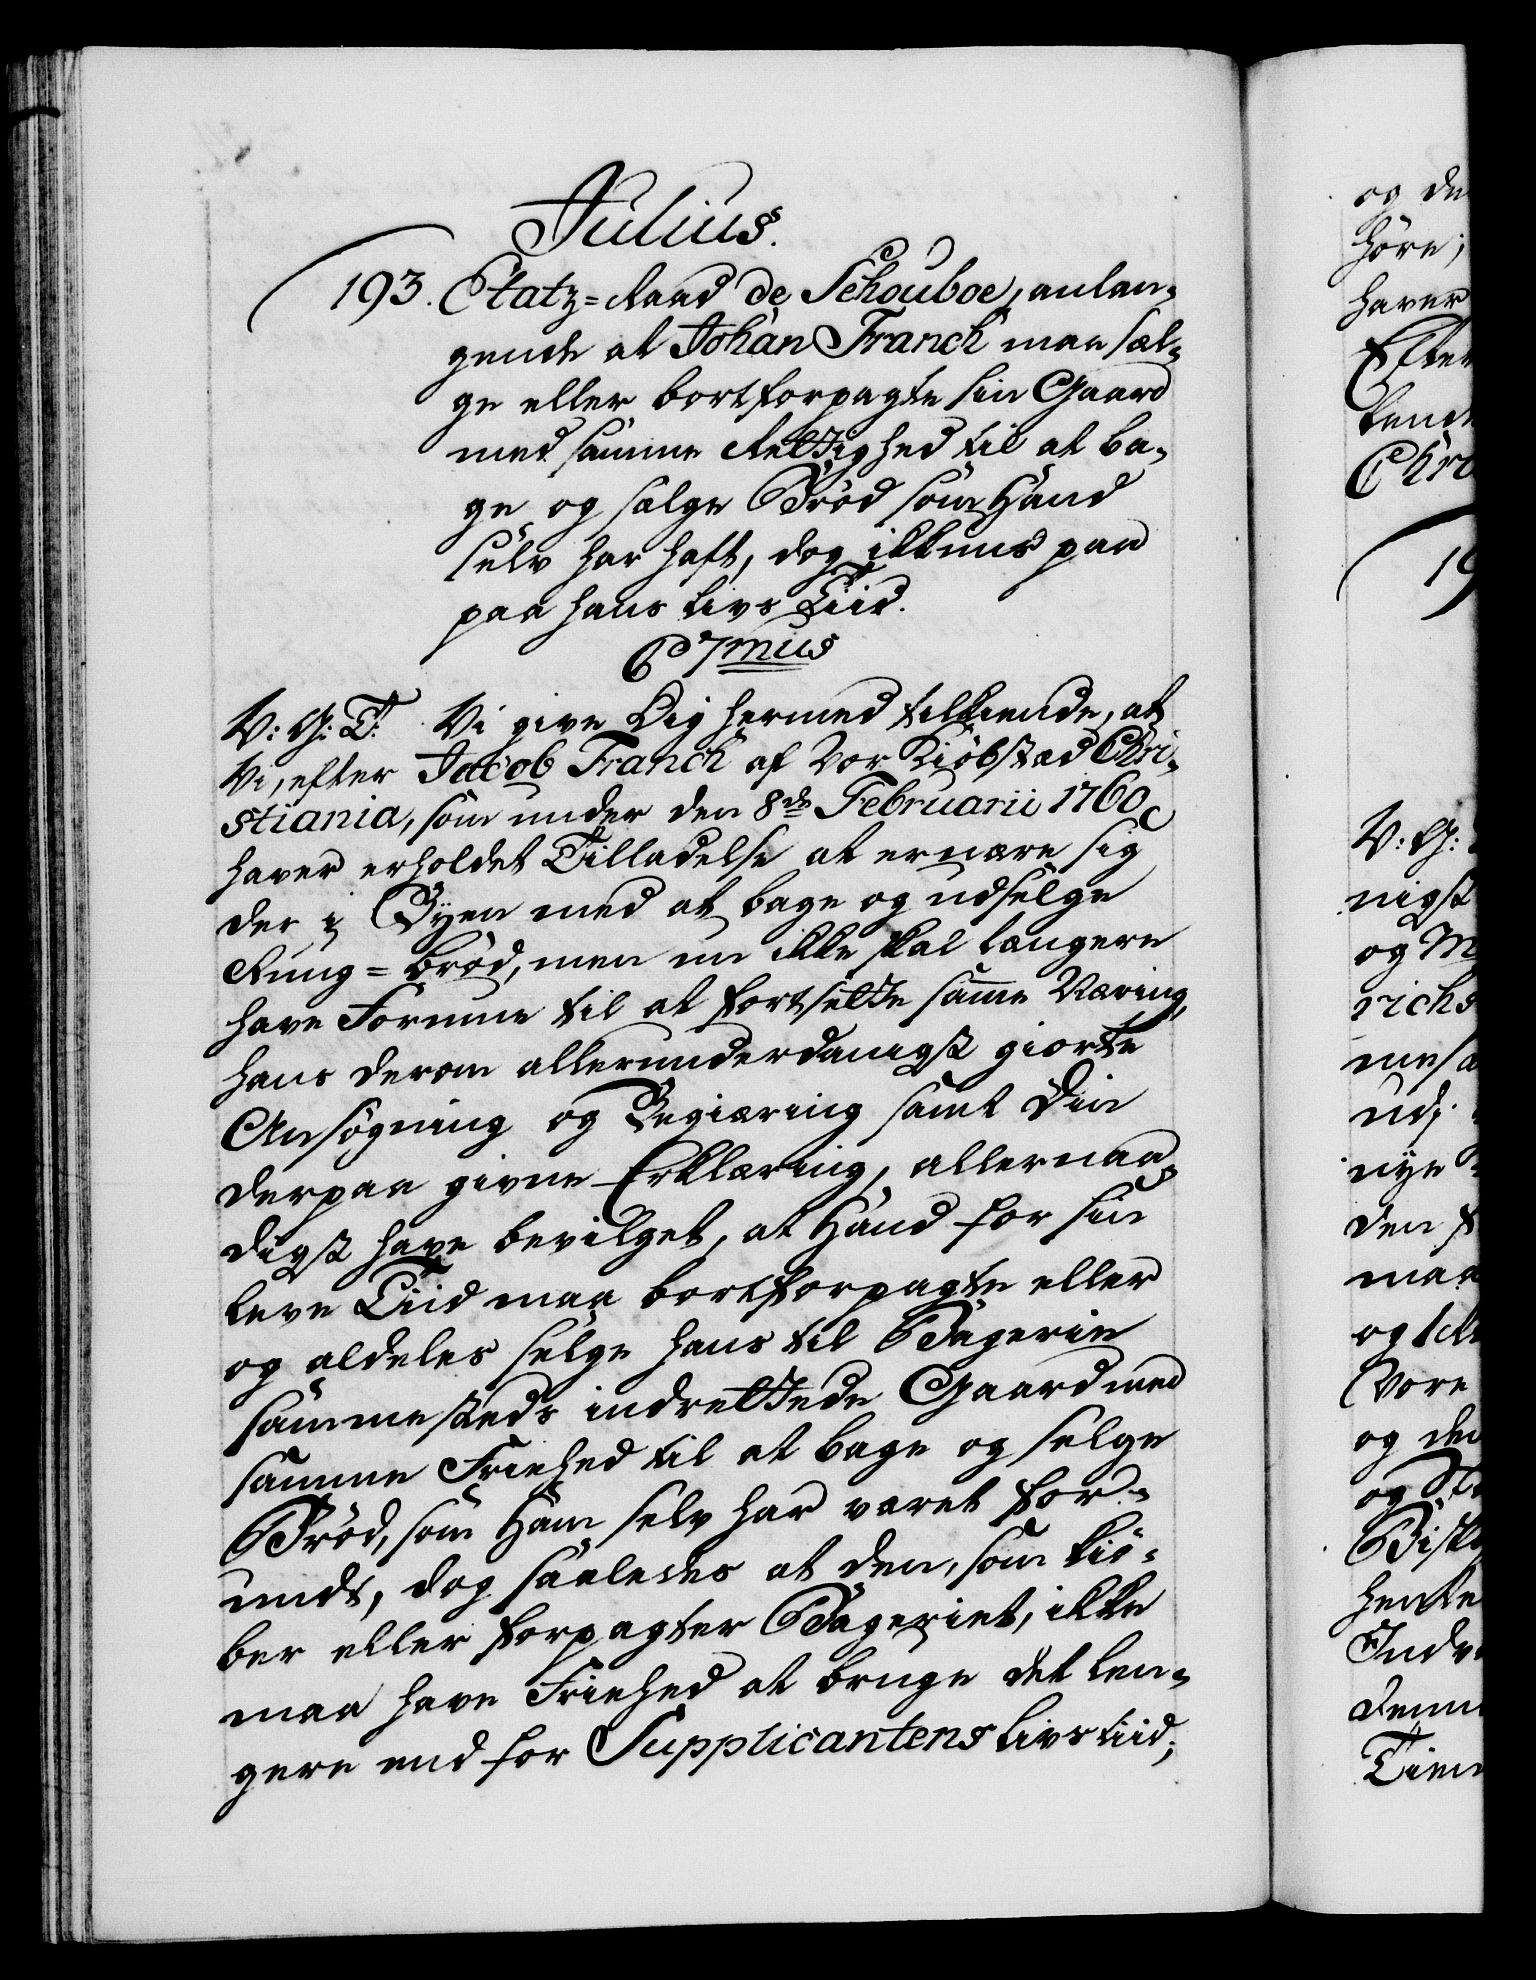 Julius.
193. Etatz=Raad de Schouboe, anlan¬
gende at Johan Franck maa sæl¬
ge eller bortforpagte sin Gaard
med samme Rettighed til at ba¬
ge og sælge Brød som Hand
selv har haft, dog ikkuns paa
paa hans Livs Tiid.
P 7mus
V: G: T. Vi give Dig hermed tilkiende, at
Vi, efter Jacob Franck af Vor Kiøbstad Chri¬
stiania, som under den 8de Februarii 1760
haver erholdet Tilladelse at ernære sig
der i Byen med at bage og udselge
Rung=brød, men nu ikke skal længere
have Formue til at fortsette samme Næring,
hans derom allerunderdanigst giorte
Ansøgning og Begiæring samt Din
derpaa givne Erklæring, allernaa¬
digst have bevilget, at Hand for sin
leve Tiid maa bortforpagte eller
og aldeles selge hans til Bagerie
sammesteds indrettede Gaard med
samme Friehed til at bage og selge
Brød, som Ham selv har været for¬
undt, dog saaledes at den, som kiø¬
ber eller forpagter Bageriet, ikke
maa have Friehed at bruge det len¬
gere end for Supplicantens livs tiid;
og de
høre;
haver
Efter
tende
Chri
19
V: G:
nigst
og M
richs
mesa
udj
nye
den f
maa
og
Vore
og den
og
Bisk
hente
Indv
denn
Tien